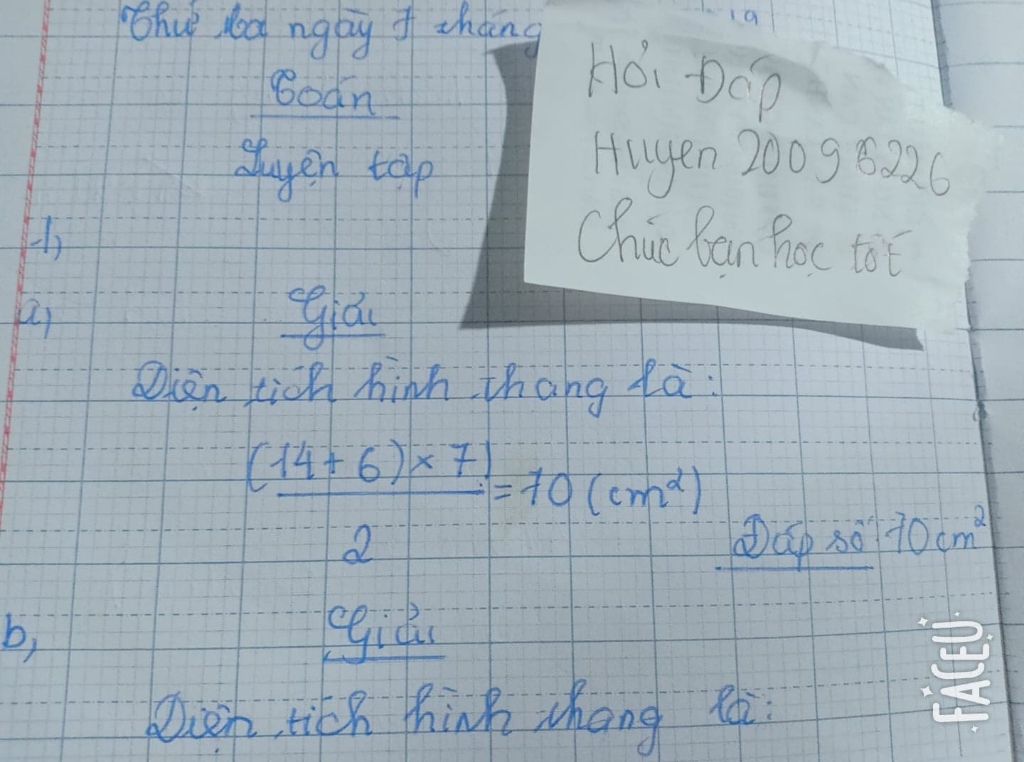 Thứ ba ngày 7 tháng
Toán
Luyện tập
1,
a,
Giải
Diện tích hình thang là:
(14 + 6) × 7
= 70 (cm²)
2
Đáp số 70 cm²
b,
Giải
Diện tích hình thang là:
Hỏi Đáp
Huyen 20096226
Chúc bạn học tốt
FACEU